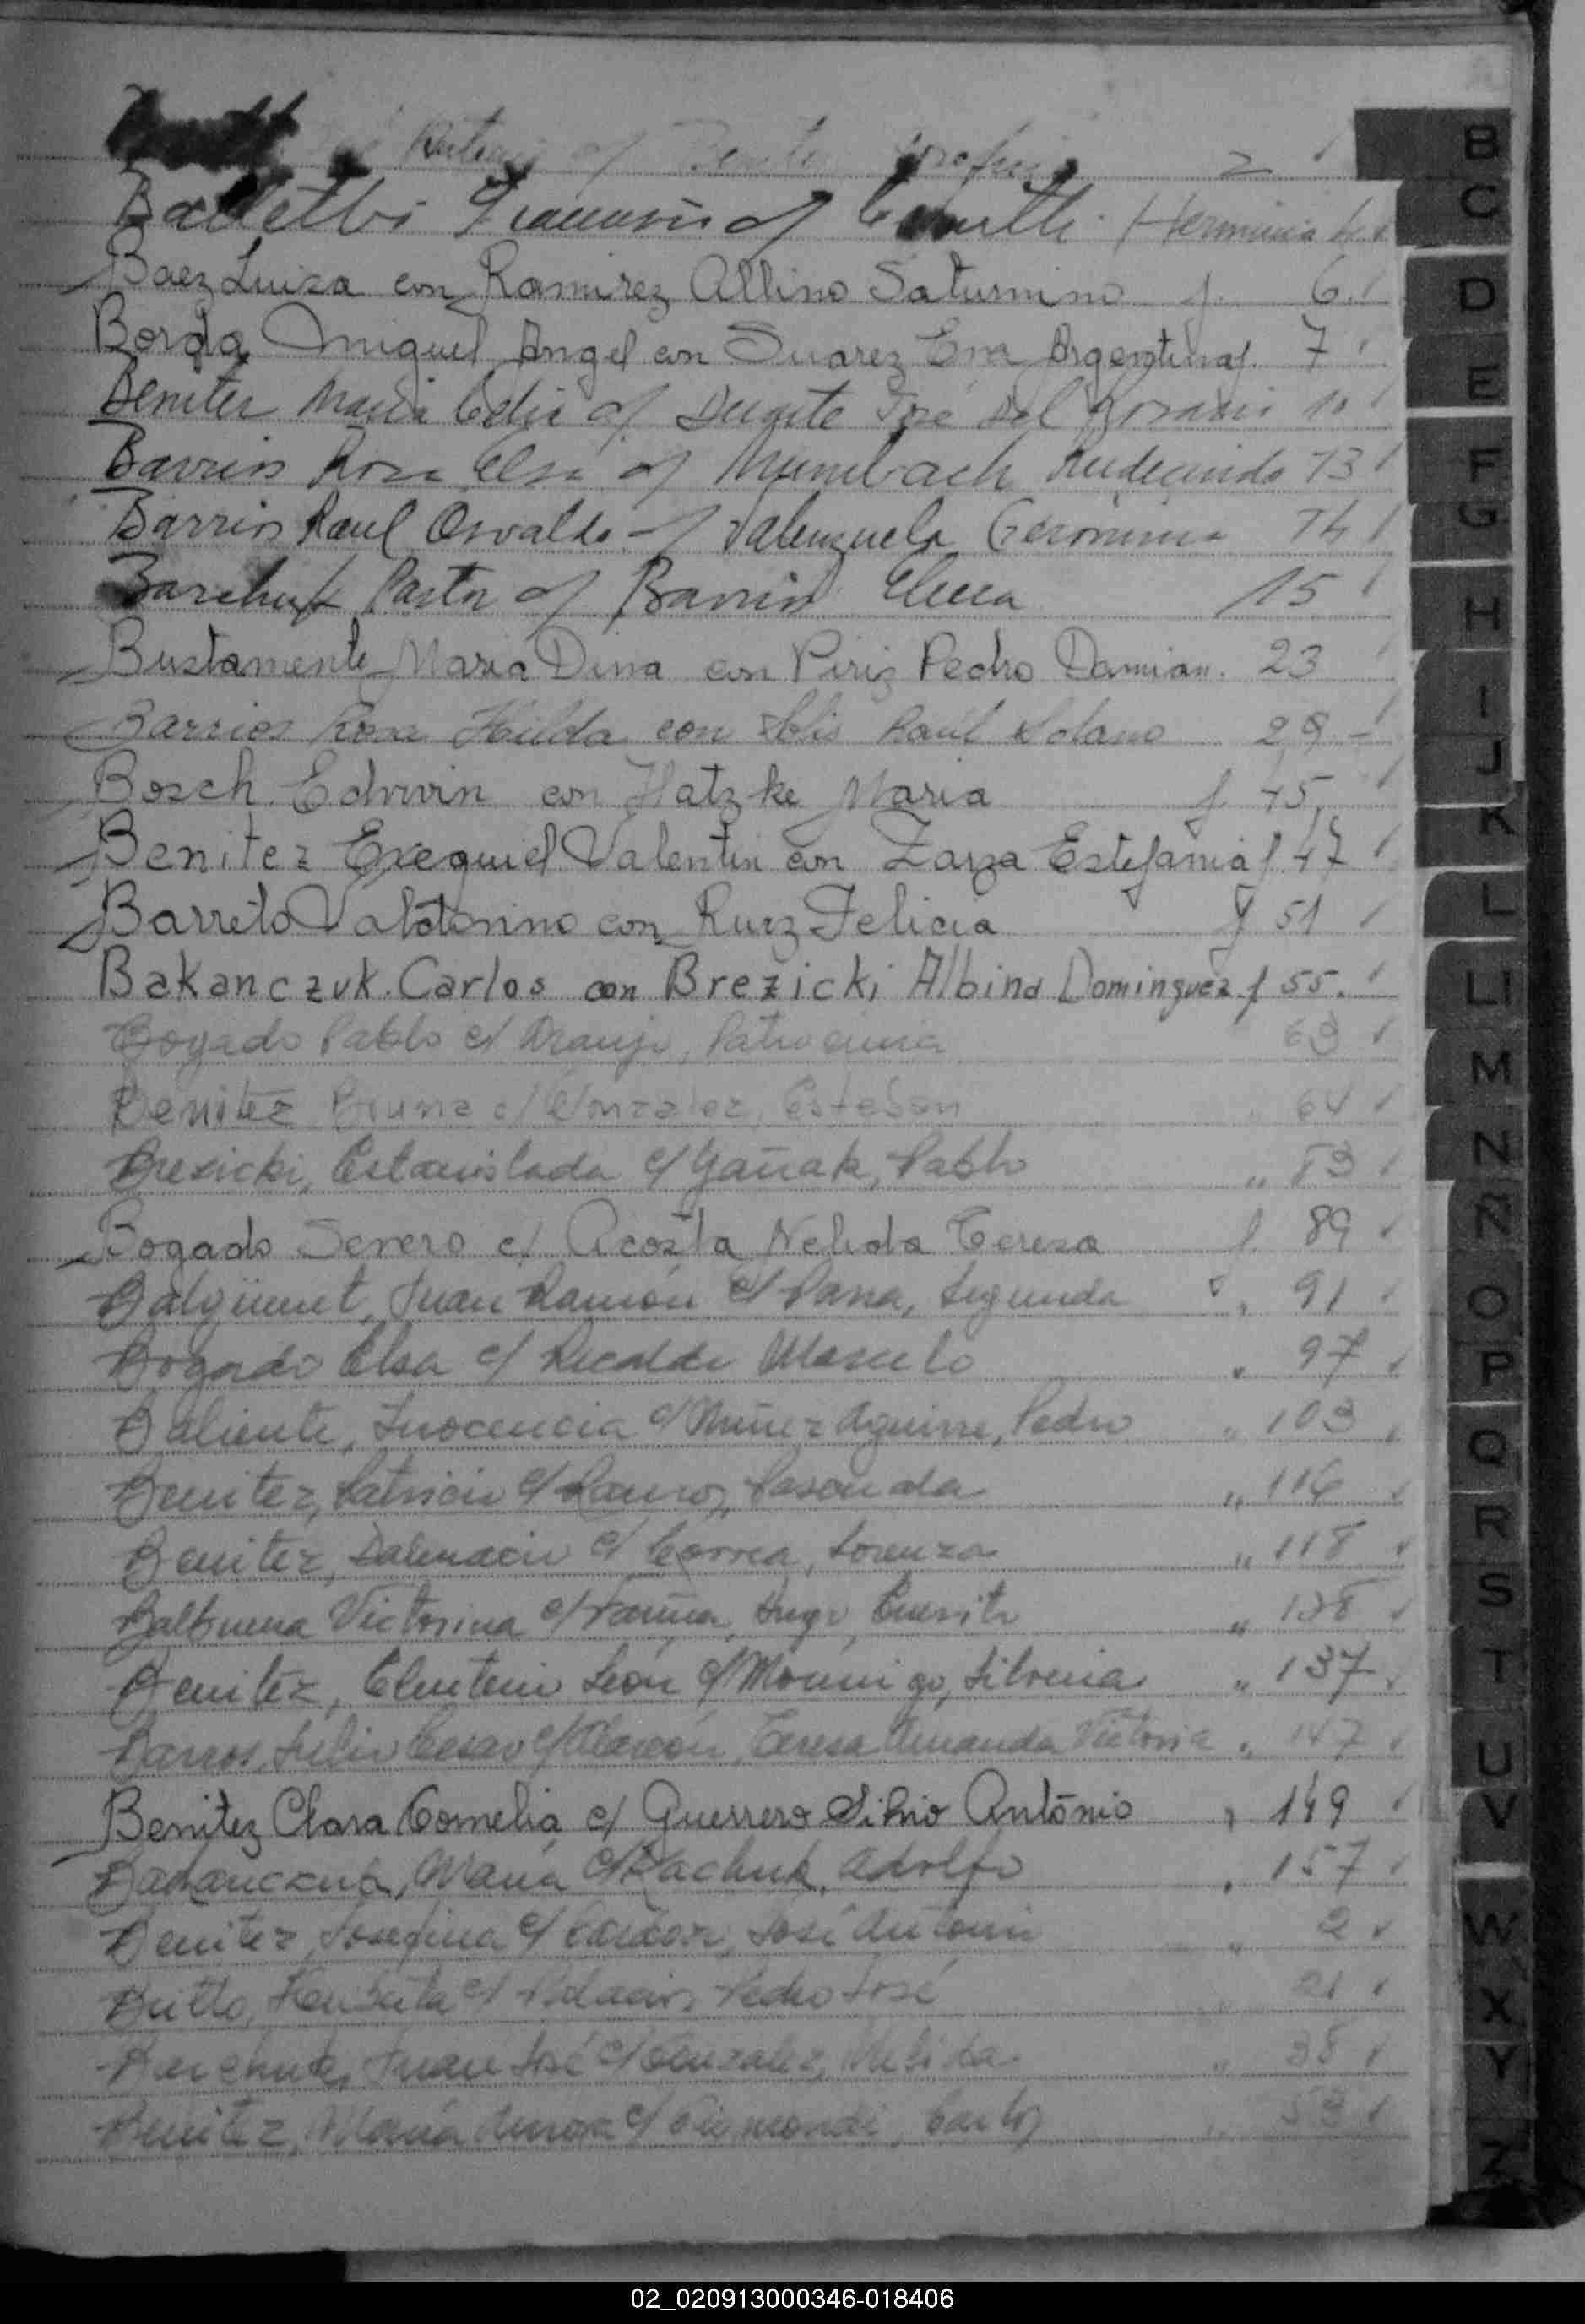 Antonio c/ Benitez 2
Francisco c/ Herminia 4
Baez Luisa con Ramirez Albino Saturnino f. 6
Borda Miguel Angel con Suarez Ema Argentina f. 7
Benitez Maria Celia c/ Duarte José del Rosario 10
Barrios Rosa Elsa c/ Mumbach Rudecindo 13
Barrios Raul Osvaldo c/ Valenzuela Geronima 14
Barchuk Pastor c/ Barrios Elena 15
Bustamente Maria Dina con Piris Pedro Damian. 23
Barrios Rosa Hilda con Solis Raul Solano 29
Bosch Edwin con Hatzke Maria f 45
Benitez Exequiel Valentin con Zarza Estefania f 47
Barreto Victorino con Ruiz Felicia f 51
Bakanczuk Carlos con Brezicki Albina Dominguez f 55.
Bogado Pablo c/ Araujo, Patrocinia 63
Benitez Bruna c/ Gonzalez, Esteban " 64
Brezicki, Estanislada c/ Gañak, Pablo " 83
Bogado Severo c/ Acosta Nelida Teresa f. 89
Balguinet, Juan Ramón c/ Segunda " 91
Bogado Elsa c/ Recalde Marcelo " 97
Baliente, Inocencia c/ Nuñez Aguirre, Pedro " 103
Benitez, Patricio c/ " 116
Benitez, Dalmacio c/ Correa, Lorenza " 118
Balbuena Victorina c/ Fariña, Hugo " 128
Benitez, Eleuterio León c/ Mourinigo, Silveria " 137
Barros, Julio Cesar c/ Alarcón, Teresa Amanda Victoria " 147
Benitez Clara Cornelia c/ Guerrero Silvio António " 149
Bakanczuk, María c/ Kachuk, Adolfo " 157
Benitez, Josefina c/ José Antonio " 2
Britto, c/ Palacios Pedro José " 21
Barchuk, Juan José c/ Gonzalez, Nelida " 38
Benitez, María c/ Carlos " 53
B
C
D
E
F
G
H
I
J
K
L
LI
M
N
Ñ
O
P
Q
R
S
T
U
V
W
X
Y
Z
02_020913000346-018406